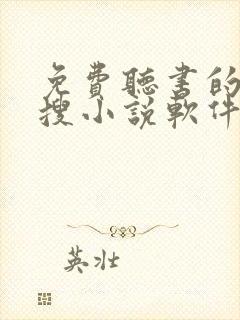 免費聽書的
搜小説軟件
英壯